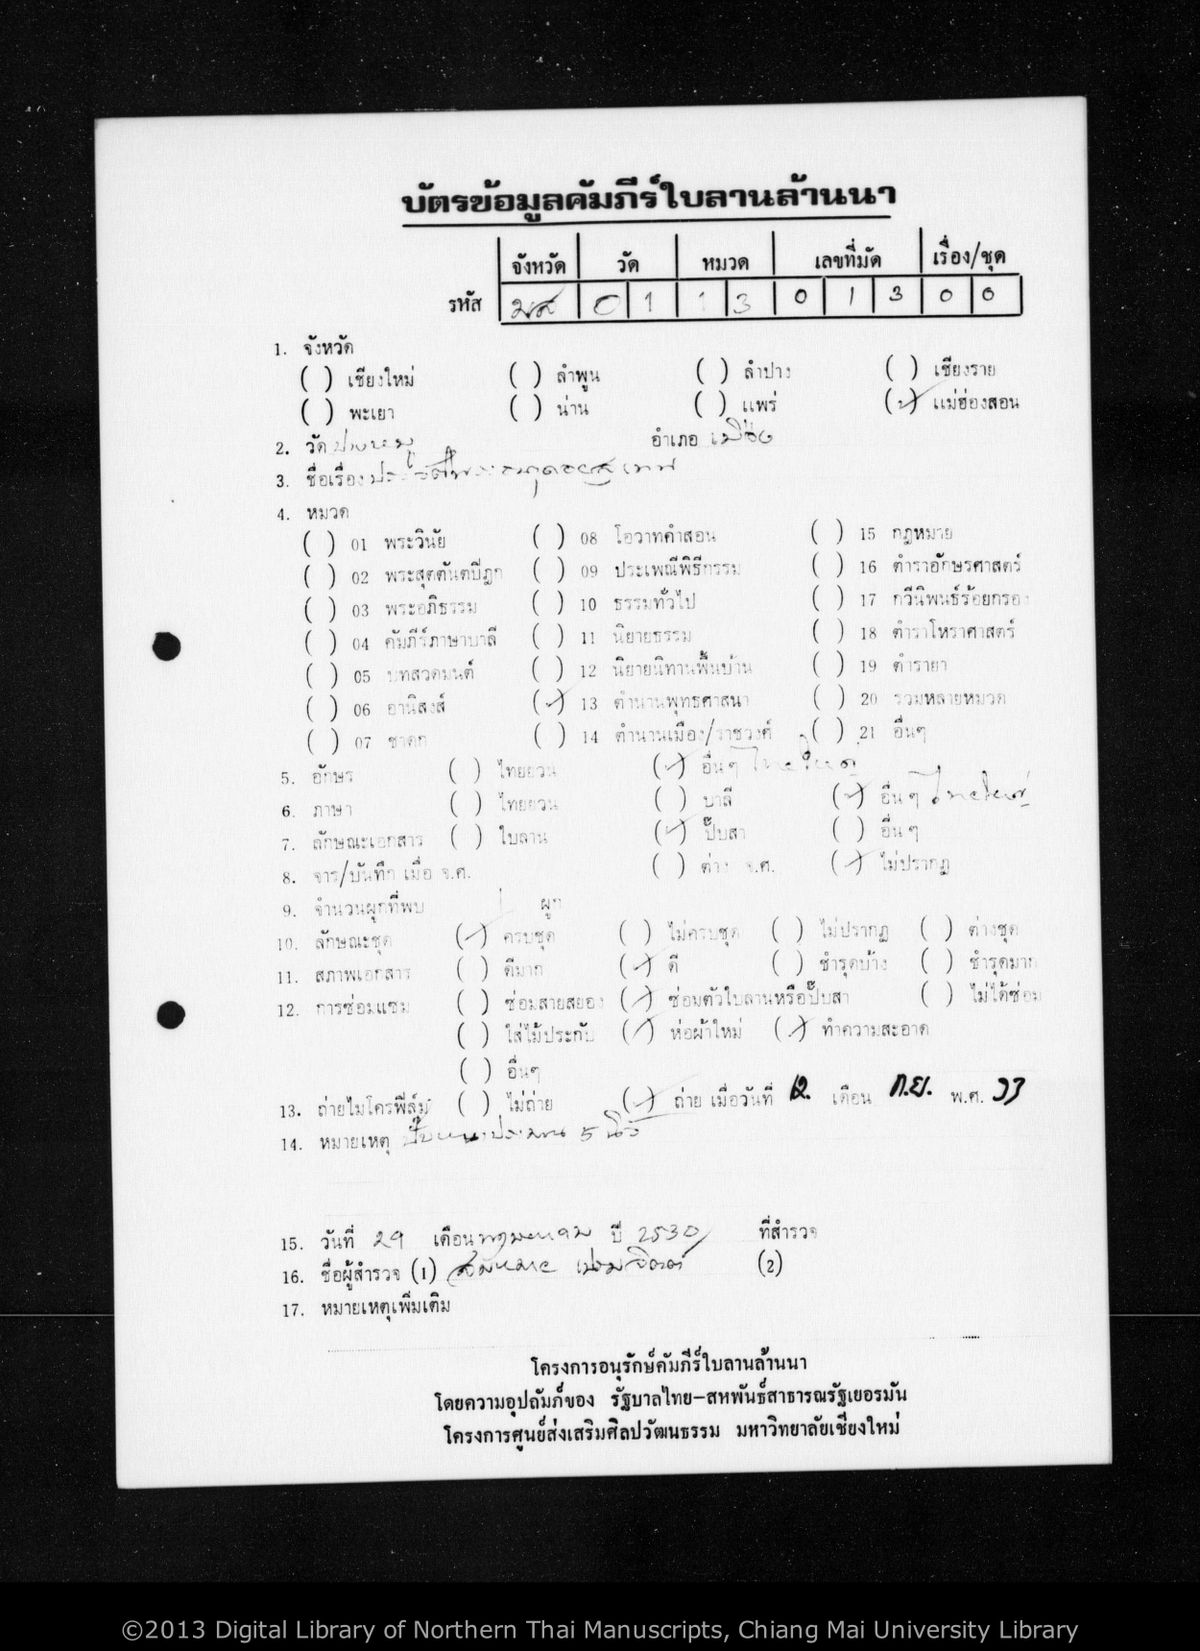 บัตรข้อมูลคัมภีร์ใบลานล้านนา
จังหวัด วัด หมวด เลขที่มัด เรื่อง/ชุด
รหัส มส 0 1 1 3 0 1 3 0 0
1. จังหวัด
( ) เชียงใหม่ ( ) ลำพูน ( ) ลำปาง ( ) เชียงราย
( ) พะเยา ( ) น่าน ( ) แพร่ (✓) แม่ฮ่องสอน
2. วัด ปางหมู อำเภอ เมือง
3. ชื่อเรื่อง
4. หมวด
( ) 01 พระวินัย ( ) 08 โอวาทคำสอน ( ) 15 กฎหมาย
( ) 02 พระสุตตันตปิฎก ( ) 09 ประเพณีพิธีกรรม ( ) 16 ตำราอักษรศาสตร์
( ) 03 พระอภิธรรม ( ) 10 ธรรมทั่วไป ( ) 17 กวีนิพนธ์ร้อยกรอง
( ) 04 คัมภีร์ภาษาบาลี ( ) 11 นิยายธรรม ( ) 18 ตำราโหราศาสตร์
( ) 05 บทสวดมนต์ ( ) 12 นิยายนิทานพื้นบ้าน ( ) 19 ตำรายา
( ) 06 อานิสงส์ (✓) 13 ตำนานพุทธศาสนา ( ) 20 รวมหลายหมวด
( ) 07 ชาดก ( ) 14 ตำนานเมือง/ราชวงศ์ ( ) 21 อื่นๆ
5. อักษร ( ) ไทยยวน (✓) อื่นๆ ไทยใหญ่
6. ภาษา ( ) ไทยยวน ( ) บาลี (✓) อื่นๆ ไทยใหญ่
7. ลักษณะเอกสาร ( ) ใบลาน (✓) ปั๊บสา ( ) อื่นๆ
8. จาร/บันทึก เมื่อ จ.ศ. ( ) ต่าง จ.ศ. (✓) ไม่ปรากฏ
9. จำนวนผูกที่พบ 1 ผูก
10. ลักษณะชุด (✓) ครบชุด ( ) ไม่ครบชุด ( ) ไม่ปรากฏ ( ) ต่างชุด
11. สภาพเอกสาร ( ) ดีมาก (✓) ดี ( ) ชำรุดบ้าง ( ) ชำรุดมาก
12. การซ่อมแซม ( ) ซ่อมสายสยอง (✓) ซ่อมตัวใบลานหรือปั๊บสา ( ) ไม่ได้ซ่อม
( ) ใส่ไม้ประกับ (✓) ห่อผ้าใหม่ (✓) ทำความสะอาด
( ) อื่นๆ
13. ถ่ายไมโครฟิล์ม ( ) ไม่ถ่าย (✓) ถ่าย เมื่อวันที่ 12 เดือน ก.ย. พ.ศ. 33
14. หมายเหตุ ปั๊บหนาประมาณ 5 นิ้ว
15. วันที่ 29 เดือน พฤษภาคม ปี 2530 ที่สำรวจ
16. ชื่อผู้สำรวจ (1) สมหมาย เปรมจิตต์ (2)
17. หมายเหตุเพิ่มเติม
โครงการอนุรักษ์คัมภีร์ใบลานล้านนา
โดยความอุปถัมภ์ของ รัฐบาลไทย-สหพันธ์สาธารณรัฐเยอรมัน
โครงการศูนย์ส่งเสริมศิลปวัฒนธรรม มหาวิทยาลัยเชียงใหม่
©2013 Digital Library of Northern Thai Manuscripts, Chiang Mai University Library